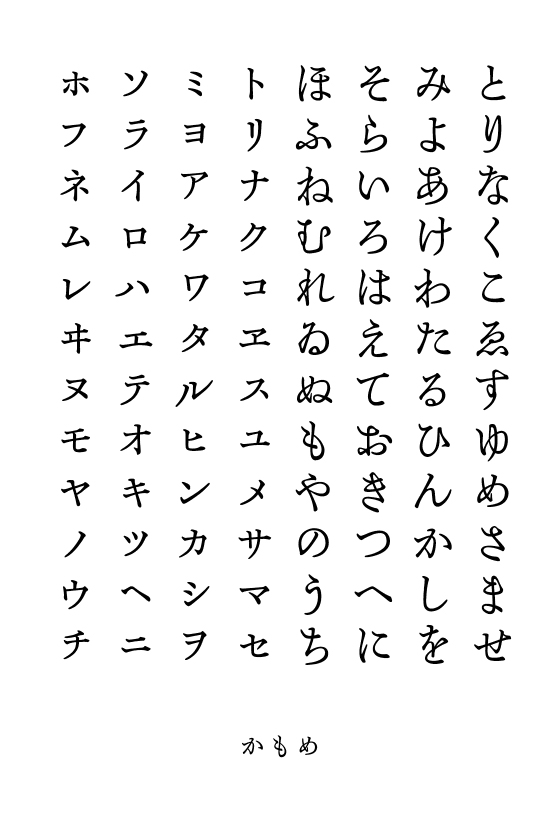 とりなくこゑすゆめさませ
みよあけわたるひんかしを
そらいろはえておきつへに
ほふねむれゐぬもやのうち
トリナクコヱスユメサマセ
ミヨアケワタルヒンカシヲ
ソライロハエテオキツヘニ
ホフネムレヰヌモヤノウチ
かもめ